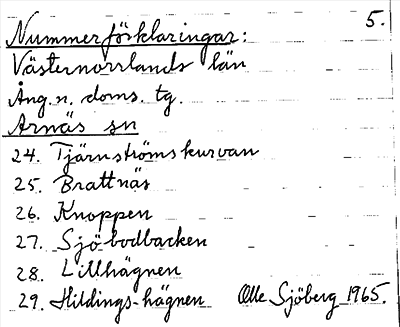 5.
Nummerförklaringar:
Västernorrlands län
Ång.n. doms. tg.
Arnäs sn
24. Tjärnströmskurvan
25. Brattnäs
26. Knoppen
27. Sjöbodbacken
28. Lillhägnen
29. Hildings-hägnen Olle Sjöberg 1965.